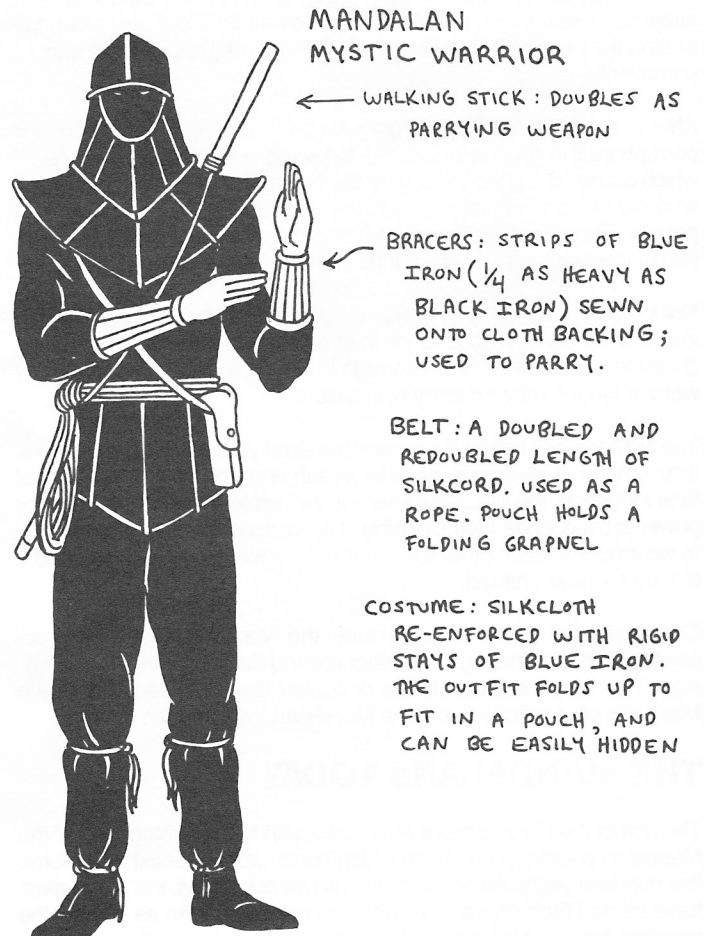 MANDALAN
MYSTIC WARRIOR
WALKING STICK : DOUBLES AS
PARRYING WEAPON
BRACERS: STRIPS OF BLUE
IRON (1/4 AS HEAVY AS
BLACK IRON) SEWN
ONTO CLOTH BACKING;
USED TO PARRY.
BELT: A DOUBLED AND
REDOUBLED LENGTH OF
SILKCORD. USED AS A
ROPE. POUCH HOLDS A
FOLDING GRAPNEL
COSTUME: SILKCLOTH
RE-ENFORCED WITH RIGID
STAYS OF BLUE IRON.
THE OUTFIT FOLDS UP TO
FIT IN A POUCH, AND
CAN BE EASILY HIDDEN